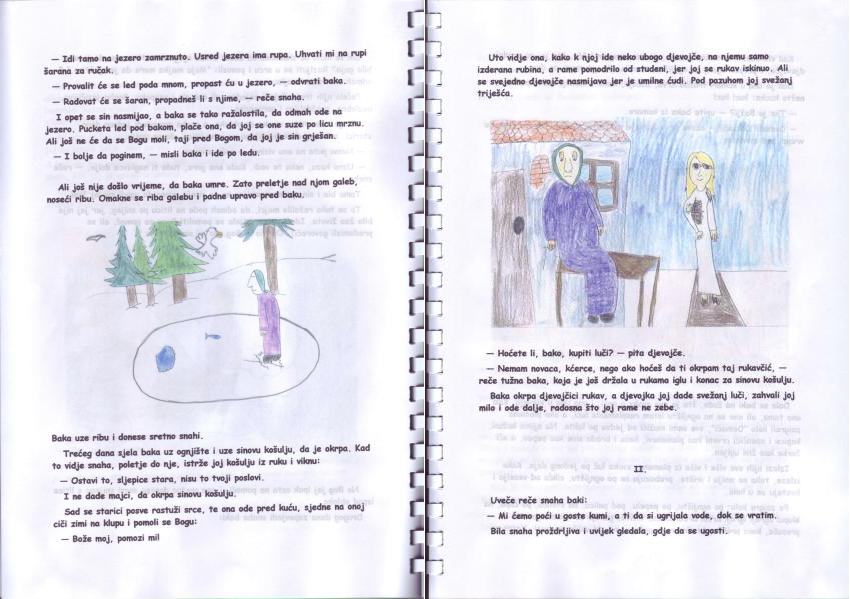 — Idi tamo na jezero zamrznuto. Usred jezera ima rupa. Uhvati mi na rupi
šarana za ručak.
— Provalit će se led poda mnom, propast ću u jezero, — odvrati baka.
— Radovat će se šaran, propadneš li s njime, — reče snaha.
I opet se sin nasmijao, a baka se tako ražalostila, da odmah ode na
jezero. Pucketa led pod bakom, plače ona, da joj se one suze po licu mrznu.
Ali još ne će da se Bogu moli, taji pred Bogom, da joj je sin grješan.
— I bolje da poginem, — misli baka i ide po ledu.
Ali još nije došlo vrijeme, da baka umre. Zato preletje nad njom galeb,
noseći ribu. Omakne se riba galebu i padne upravo pred baku.
Baka uze ribu i donese sretno snahi.
Trećeg dana sjela baka uz ognjište i uze sinovu košulju, da je okrpa. Kad
to vidje snaha, poletje do nje, istrže joj košulju iz ruku i viknu:
— Ostavi to, sljepice stara, nisu to tvoji poslovi.
I ne dade majci, da okrpa sinovu košulju.
Sad se starici posve rastuži srce, te ona ode pred kuću, sjedne na onoj
ciči zimi na klupu i pomoli se Bogu:
— Bože moj, pomozi mi!
Uto vidje ona, kako k njoj ide neko ubogo djevojče, na njemu samo
izderana rubina, a rame pomodrilo od studeni, jer joj se rukav iskinuo. Ali
se svejedno djevojče nasmijava jer je umilne ćudi. Pod pazuhom joj svežanj
triješća.
— Hoćete li, bako, kupiti luči? — pita djevojče.
— Nemam novaca, kćerce, nego ako hoćeš da ti okrpam taj rukavčić, —
reče tužna baka, koja je još držala u rukama iglu i konac za sinovu košulju.
Baka okrpa djevojčici rukav, a djevojka joj dade svežanj luči, zahvali joj
milo i ode dalje, radosna što joj rame ne zebe.
II.
Uveče reče snaha baki:
— Mi ćemo poći u goste kumi, a ti da si ugrijala vode, dok se vratim.
Bila snaha proždrljiva i uvijek gledala, gdje da se ugosti.